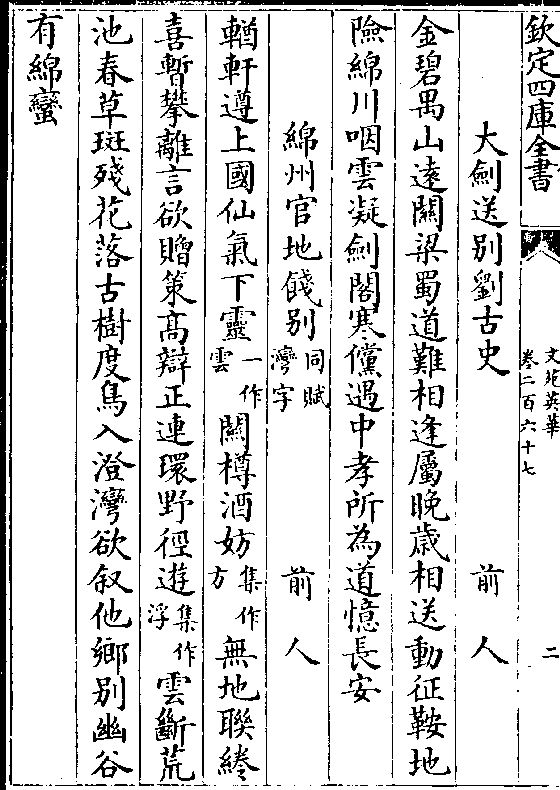 欽定四庫全書
文苑英華
卷二百六十七
二
大劍送別劉古史
前人
金碧禺山遠關梁蜀道難相逢屬晚歳相送動征鞍地
險綿川咽雲凝劍閣寒儻遇中孝所為道憶長安
綿州官地餞別同賦灣字
前人
輶軒遵上國仙氣下靈一作雲關樽酒妨集作方無地聯綣
喜暫攀離言欲贈策髙辯正連環野徑遊集作浮雲斷荒
池春草斑殘花落古樹度鳥入澄灣欲叙他鄉別幽谷
有綿蠻